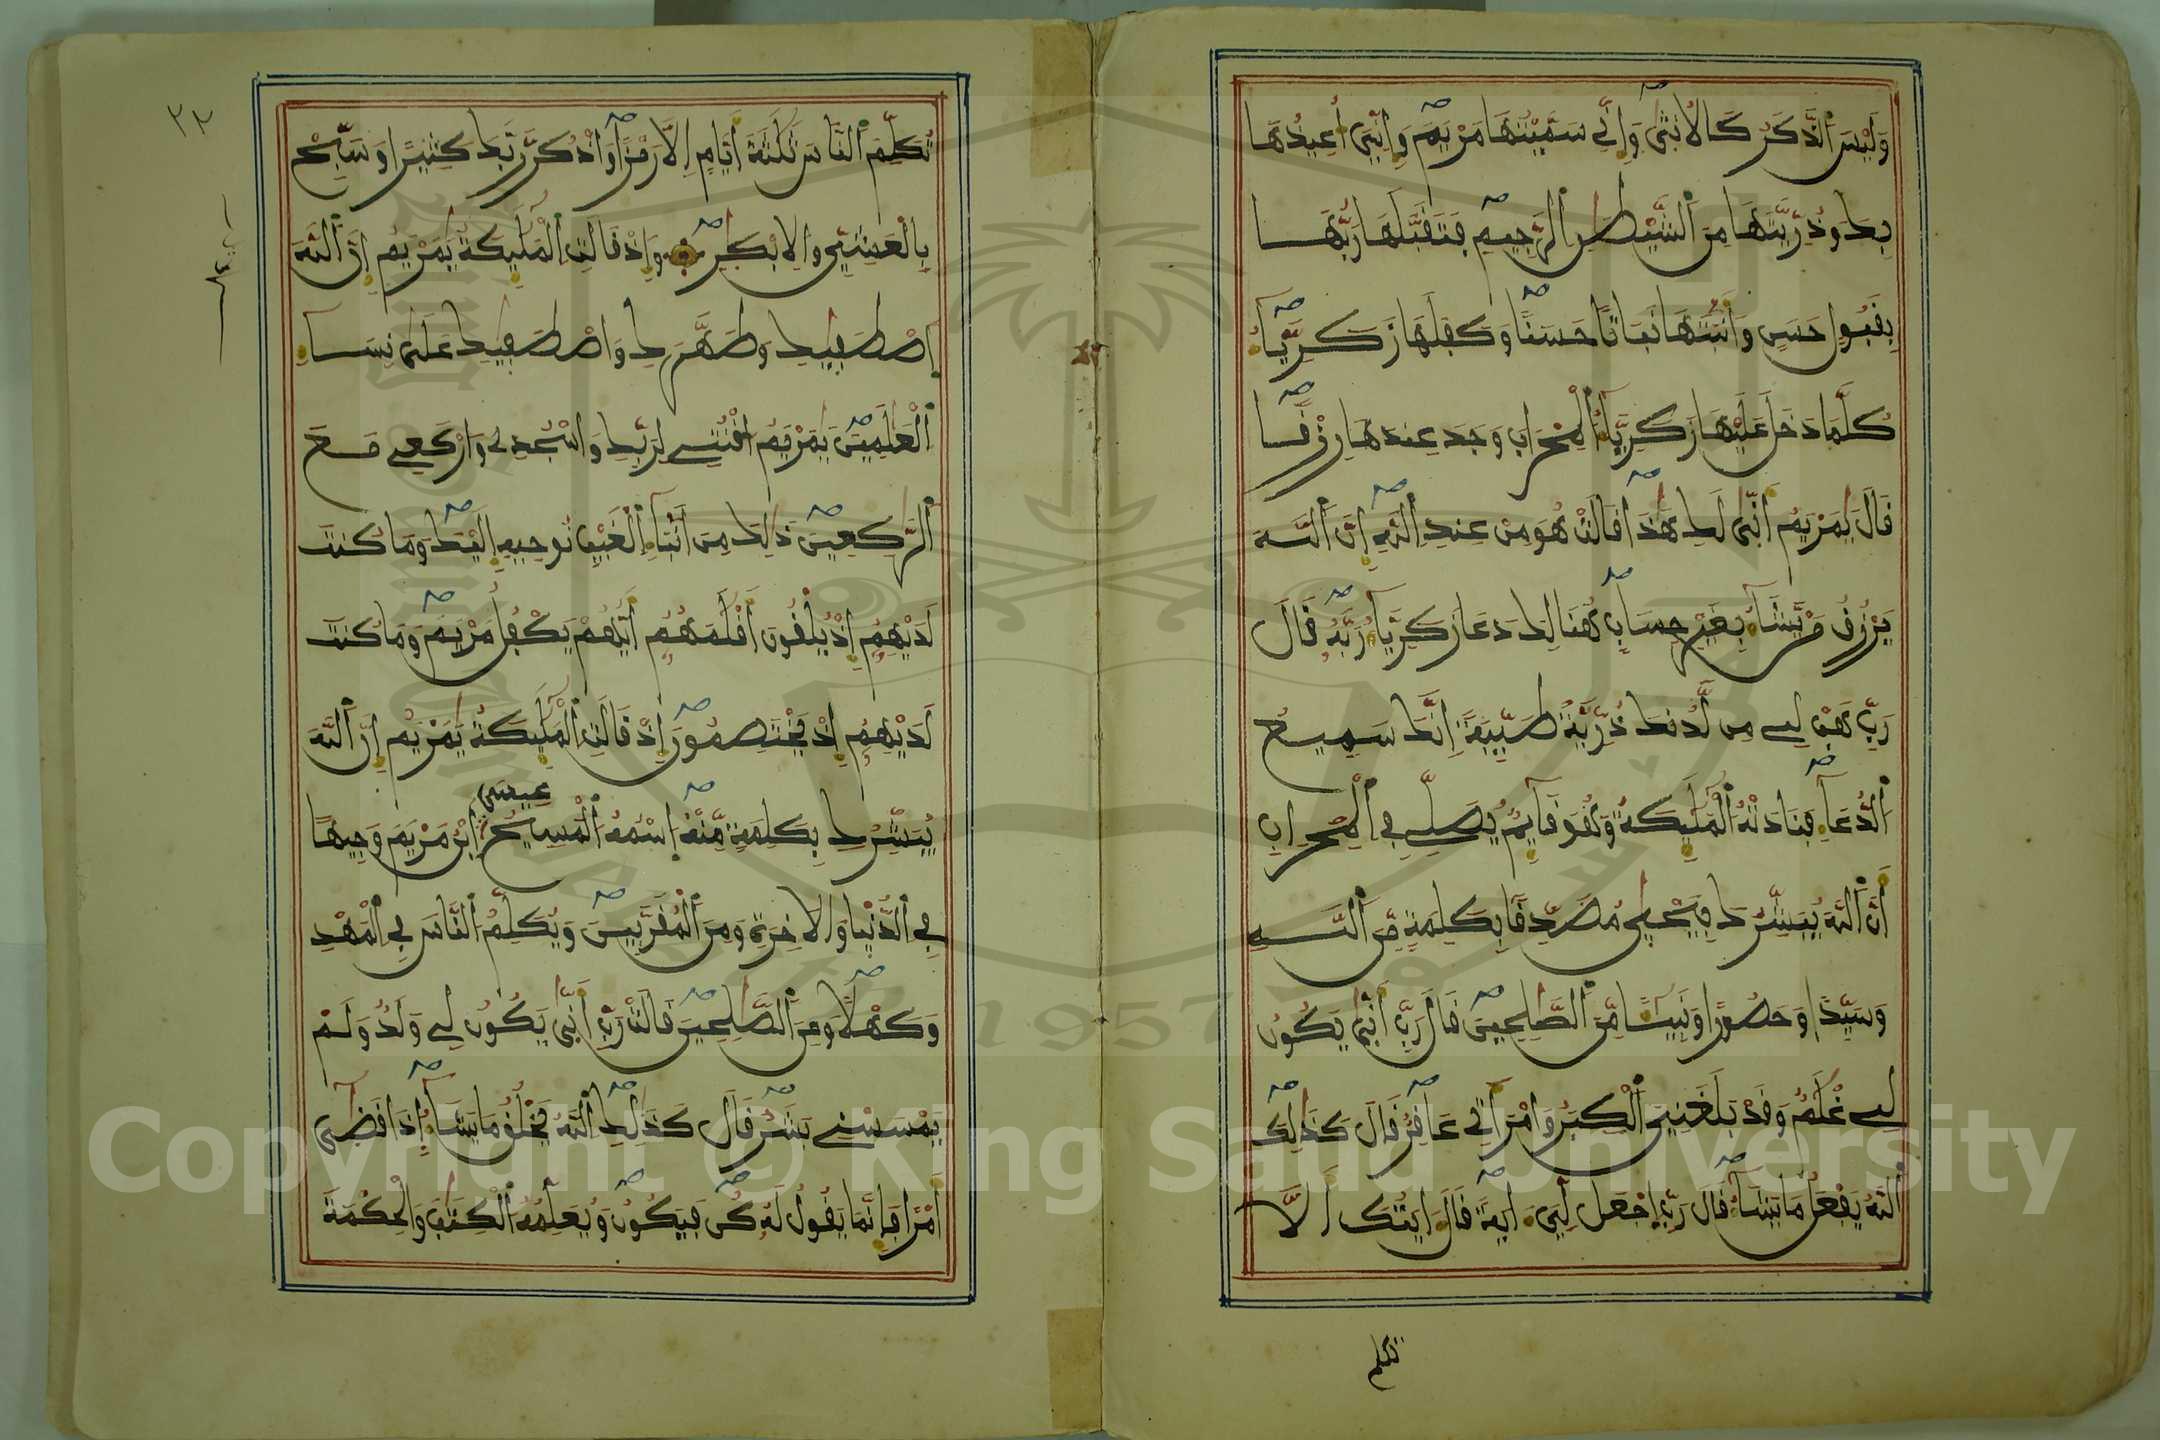 وَلَيْسَ ٱلذَّكَرُ كَالُانثىٰ وَإِنِّے سَمَّيْتُهَا مَرْيَمَ وَإِنِّيَ أُعِيذُهَا
بِكَ وَذُرِّيَّتَهَا مِنَ ٱلشَّيْطَٰنِ ٱلرَّجِيمِ فَتَقَبَّلَهَا رَبُّهَا
بِقَبُولٍ حَسَنٍ وَأَنۢبَتَهَا نَبَاتًا حَسَنًا وَكَفَلَهَا زَكَرِيَّآءُ
كُلَّمَا دَخَلَ عَلَيْهَا زَكَرِيَّآءُ ٱلْمِحْرَابَ وَجَدَ عِندَهَا رِزْقًا
قَالَ يَٰمَرْيَمُ أَنّىٰ لَكِ هَٰذَا قَالَتْ هُوَ مِنْ عِندِ ٱللَّهِ إِنَّ ٱللَّهَ
يَرْزُقُ مَنْ يَّشَآءُ بِغَيْرِ حِسَابٍ هُنَالِكَ دَعَا زَكَرِيَّآءُ رَبَّهُ قَالَ
رَبِّ هَبْ لِے مِن لَّدُنكَ ذُرِّيَّةً طَيِّبَةً إِنَّكَ سَمِيعُ
ٱلدُّعَآءِ فَنَادَتْهُ ٱلْمَلَٰٓئِكَةُ وَهُوَ قَآئِمٌ يُصَلِّے فِے ٱلْمِحْرَابِ
أَنَّ ٱللَّهَ يُبَشِّرُكَ بِيَحْيىٰ مُصَدِّقًا بِكَلِمَةٍ مِّنَ ٱللَّهِ
وَسَيِّدًا وَحَصُورًا وَنَبِيٓـًٔا مِّنَ ٱلصَّٰلِحِينَ قَالَ رَبِّ أَنّىٰ يَكُونُ
لِے غُلَٰمٌ وَقَدْ بَلَغَنِيَ ٱلْكِبَرُ وَامْرَأَتِے عَاقِرٌ قَالَ كَذَٰلِكَ
ٱللَّهُ يَفْعَلُ مَا يَشَآءُ قَالَ رَبِّ إِجْعَل لِّيَ ءَايَةً قَالَ ءَايَتُكَ أَلَّا
تكلم
٣٣
تُكَلِّمَ ٱلنَّاسَ ثَلَٰثَةَ أَيَّامٍ إِلَّا رَمْزًا وَاذْكُر رَّبَّكَ كَثِيرًا وَسَبِّحْ
بِالْعَشِيِّ وَالِابْكَٰرِ وَإِذْ قَالَتِ ٱلْمَلَٰٓئِكَةُ يَٰمَرْيَمُ إِنَّ ٱللَّهَ
إَصْطَفَيٰكِ وَطَهَّرَكِ وَاصْطَفَيٰكِ عَلَىٰ نِسَآءِ
ٱلْعَٰلَمِينَ يَٰمَرْيَمُ اقْنُتِے لِرَبِّكِ وَاسْجُدِے وَارْكَعِے مَعَ
ٱلرَّٰكِعِينَ ذَٰلِكَ مِنَ أَنۢبَآءِ ٱلْغَيْبِ نُوحِيهِ إِلَيْكَ وَمَا كُنتَ
لَدَيْهِمُ إِذْ يُلْقُونَ أَقْلَٰمَهُمُ أَيُّهُمْ يَكْفُلُ مَرْيَمَ وَمَا كُنتَ
لَدَيْهِمُ إِذْ يَخْتَصِمُونَ إِذْ قَالَتِ ٱلْمَلَٰٓئِكَةُ يَٰمَرْيَمُ إِنَّ ٱللَّهَ
يُبَشِّرُكِ بِكَلِمَةٍ مِّنْهُ إِسْمُهُ ٱلْمَسِيحُ عيسى ابْنُ مَرْيَمَ وَجِيهًا
فِے ٱلدُّنْيَا وَالَاخِرَةِ وَمِنَ ٱلْمُقَرَّبِينَ وَيُكَلِّمُ ٱلنَّاسَ فِے ٱلْمَهْدِ
وَكَهْلًا وَمِنَ ٱلصَّٰلِحِينَ قَالَتْ رَبِّ أَنّىٰ يَكُونُ لِے وَلَدٌ وَلَمْ
يَمْسَسْنِے بَشَرٌ قَالَ كَذَٰلِكِ ٱللَّهُ يَخْلُقُ مَا يَشَآءُ إِذَا قَضَىٰٓ
أَمْرًا فَإِنَّمَا يَقُولُ لَهُ كُن فَيَكُونُ وَيُعَلِّمُهُ ٱلْكِتَٰبَ وَالْحِكْمَةَ
Copyright © King Saud University
1957